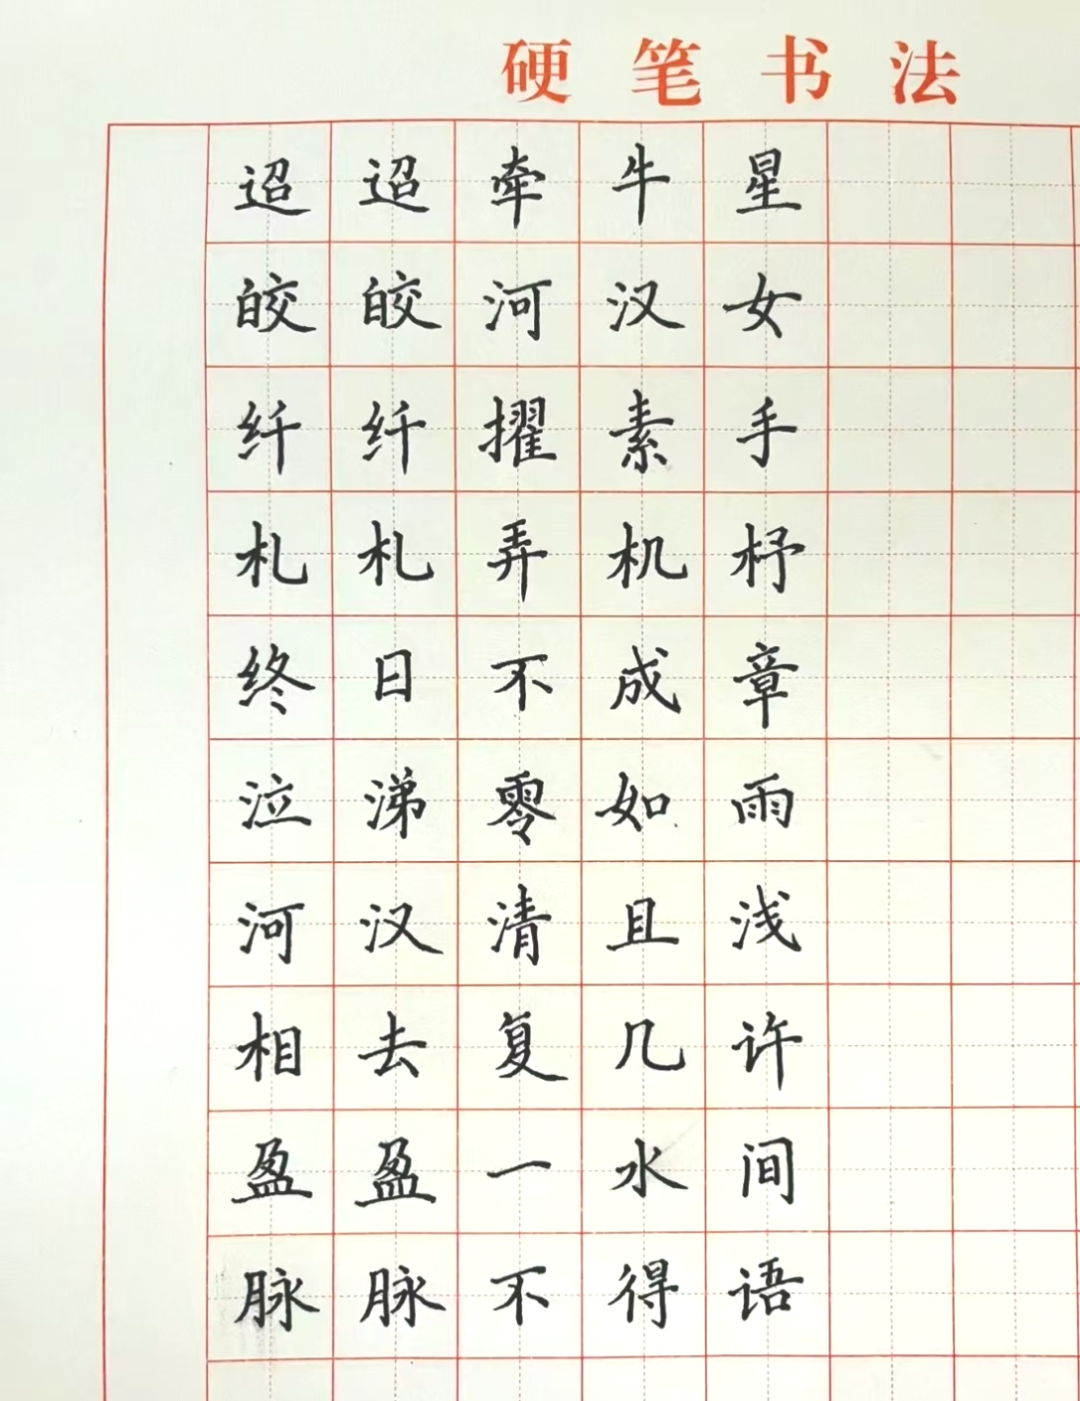 硬笔书法
迢迢牵牛星
皎皎河汉女
纤纤擢素手
札札弄机杼
终日不成章
泣涕零如雨
河汉清且浅
相去复几许
盈盈一水间
脉脉不得语